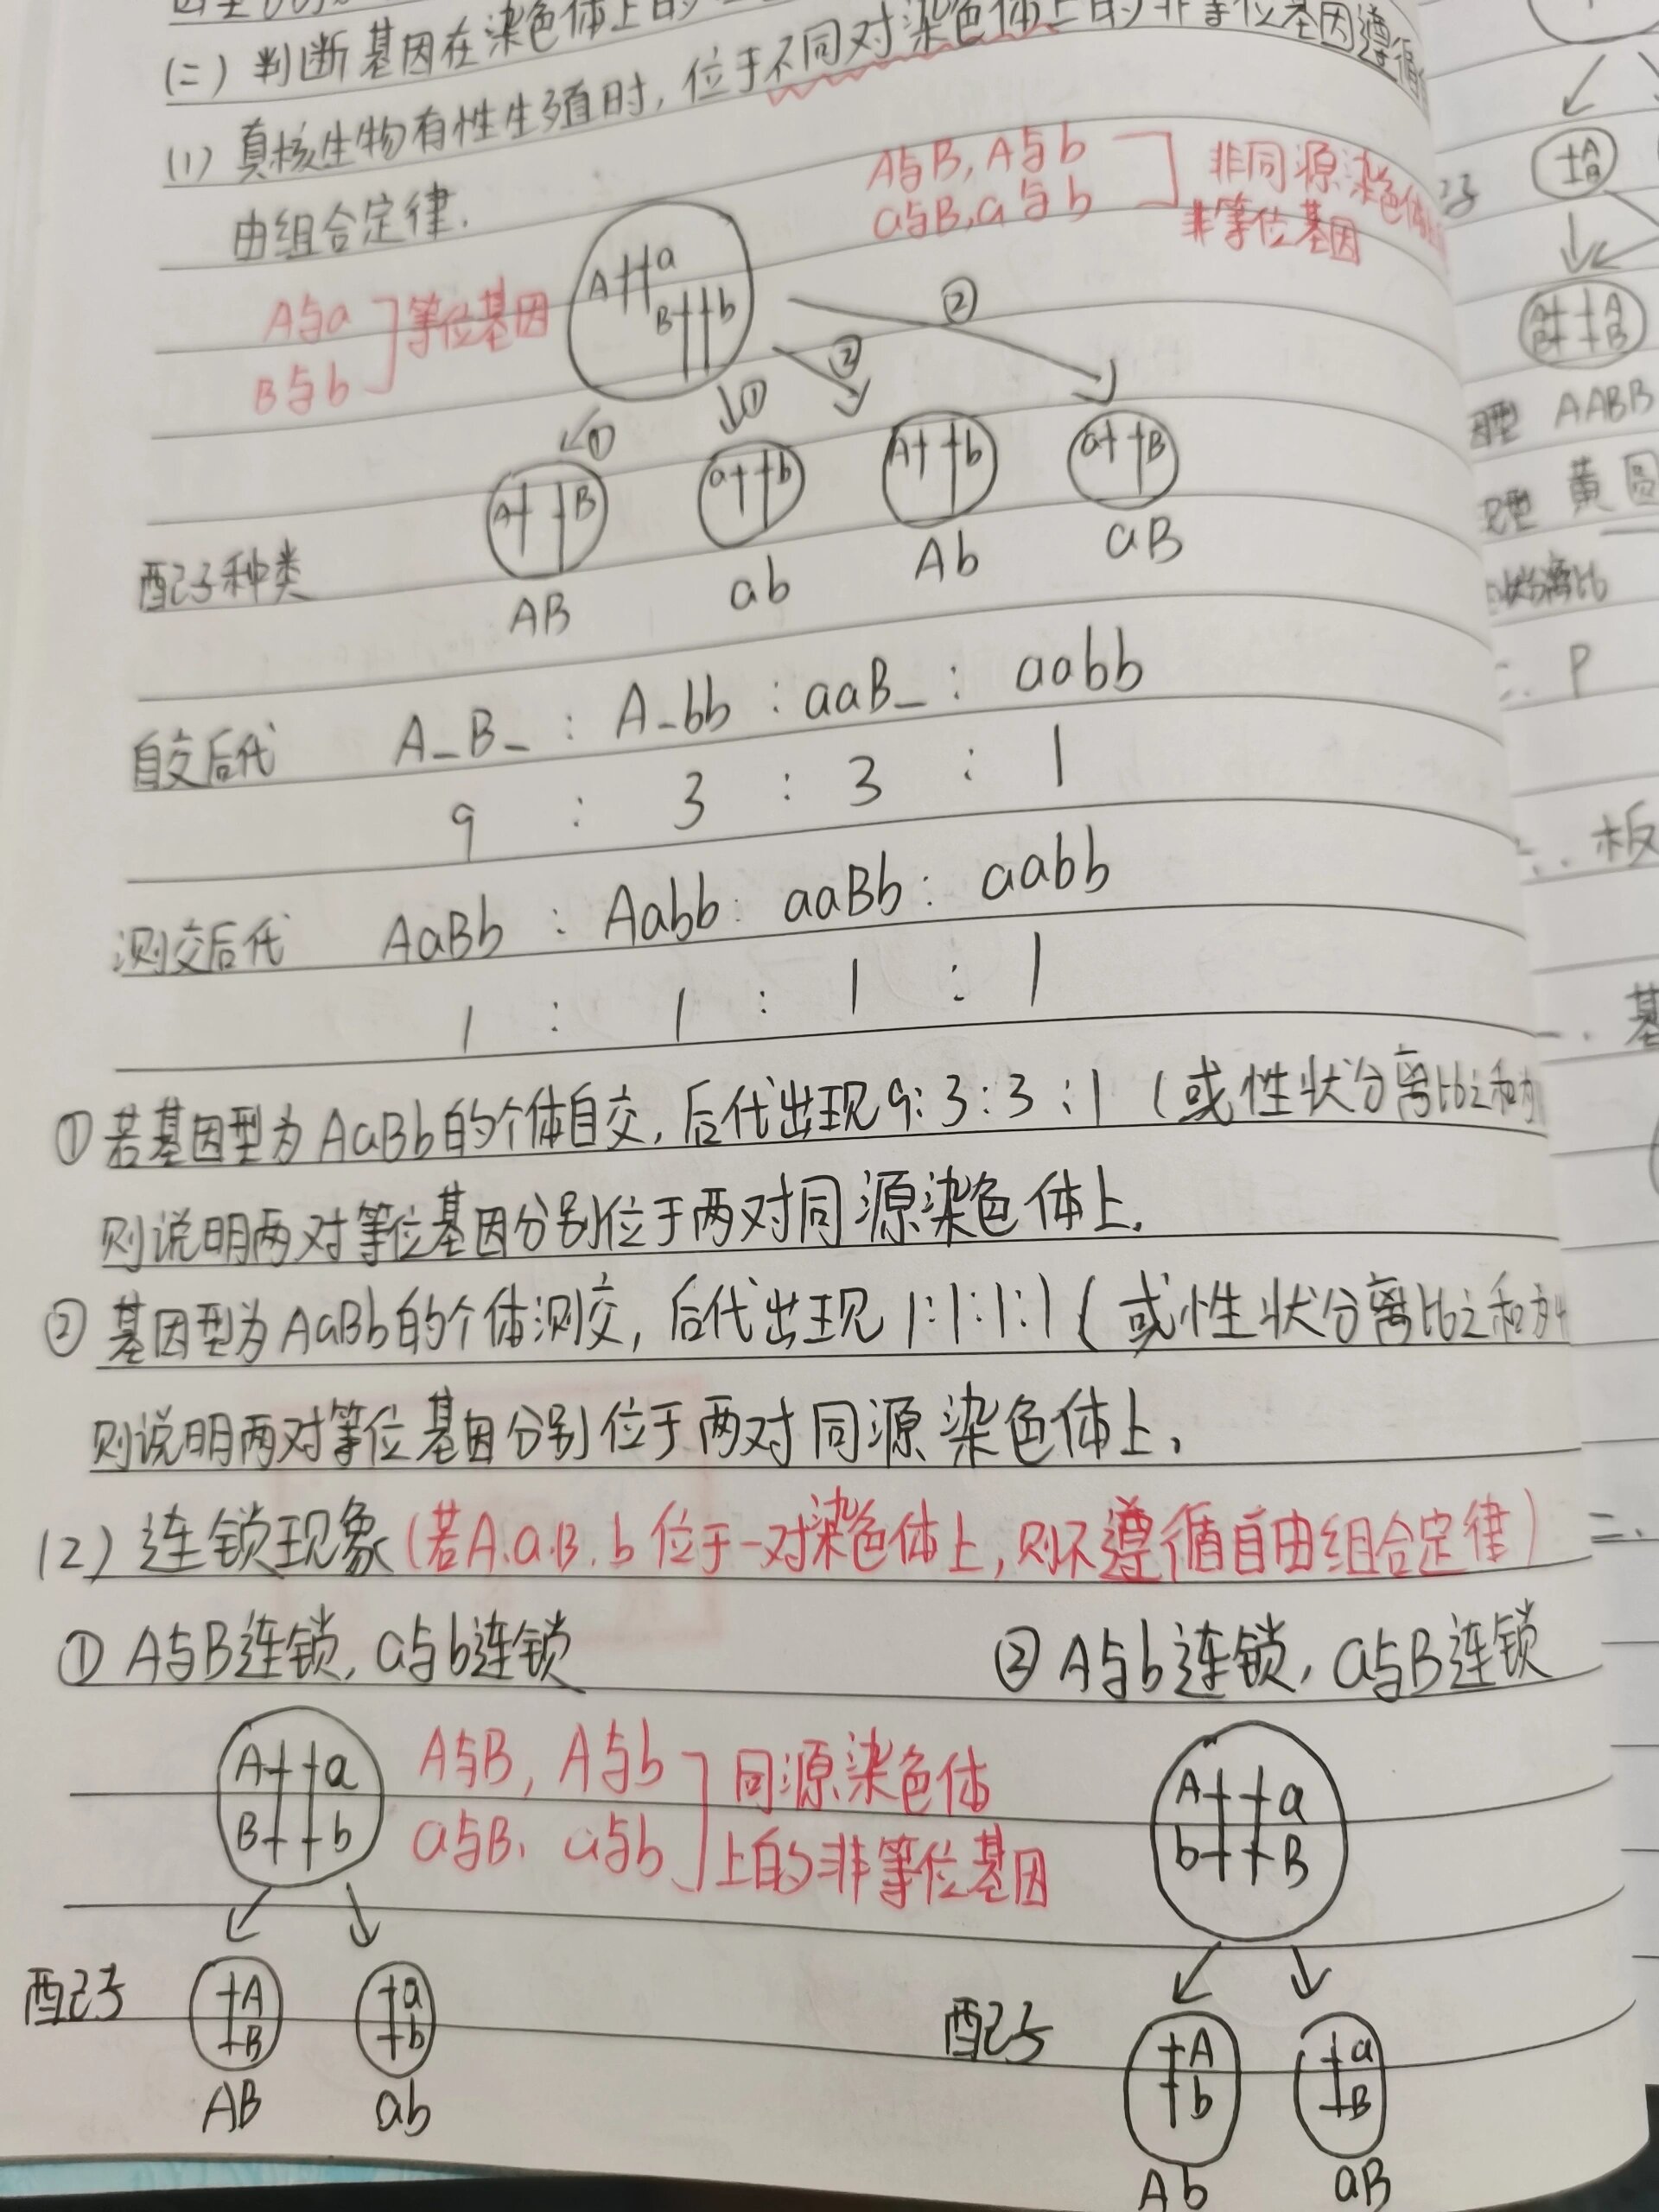 (二) 判断基因在染色体上的
(1) 真核生物有性生殖时, 位于不同对染色体上的非等位基因遵循
由组合定律.
A与B, A与b
a与B, a与b
非同源染色体
非等位基因
A与a
B与b
等位基因
A a
B b
① ① ② ②
A B a b A b a B
配子种类 AB ab Ab aB
自交后代 A_B_ : A_bb : aaB_ : aabb
9 : 3 : 3 : 1
测交后代 AaBb : Aabb : aaBb : aabb
1 : 1 : 1 : 1
① 若基因型为AaBb的个体自交, 后代出现9:3:3:1 (或性状分离比之和为
则说明两对等位基因分别位于两对同源染色体上.
② 基因型为AaBb的个体测交, 后代出现1:1:1:1 (或性状分离比之和为4
则说明两对等位基因分别位于两对同源染色体上.
(2) 连锁现象 (若A.a.B.b位于一对染色体上, 则不遵循自由组合定律)
① A与B连锁, a与b连锁
② A与b连锁, a与B连锁
A a
B b
A与B, A与b
a与B, a与b
同源染色体
上的非等位基因
A a
b B
配子
A a
B b
AB ab
配子
A a
b B
Ab aB
A
B
A A
B B
型 AABB
型 黄圆
状分离比
P
板
基
二、